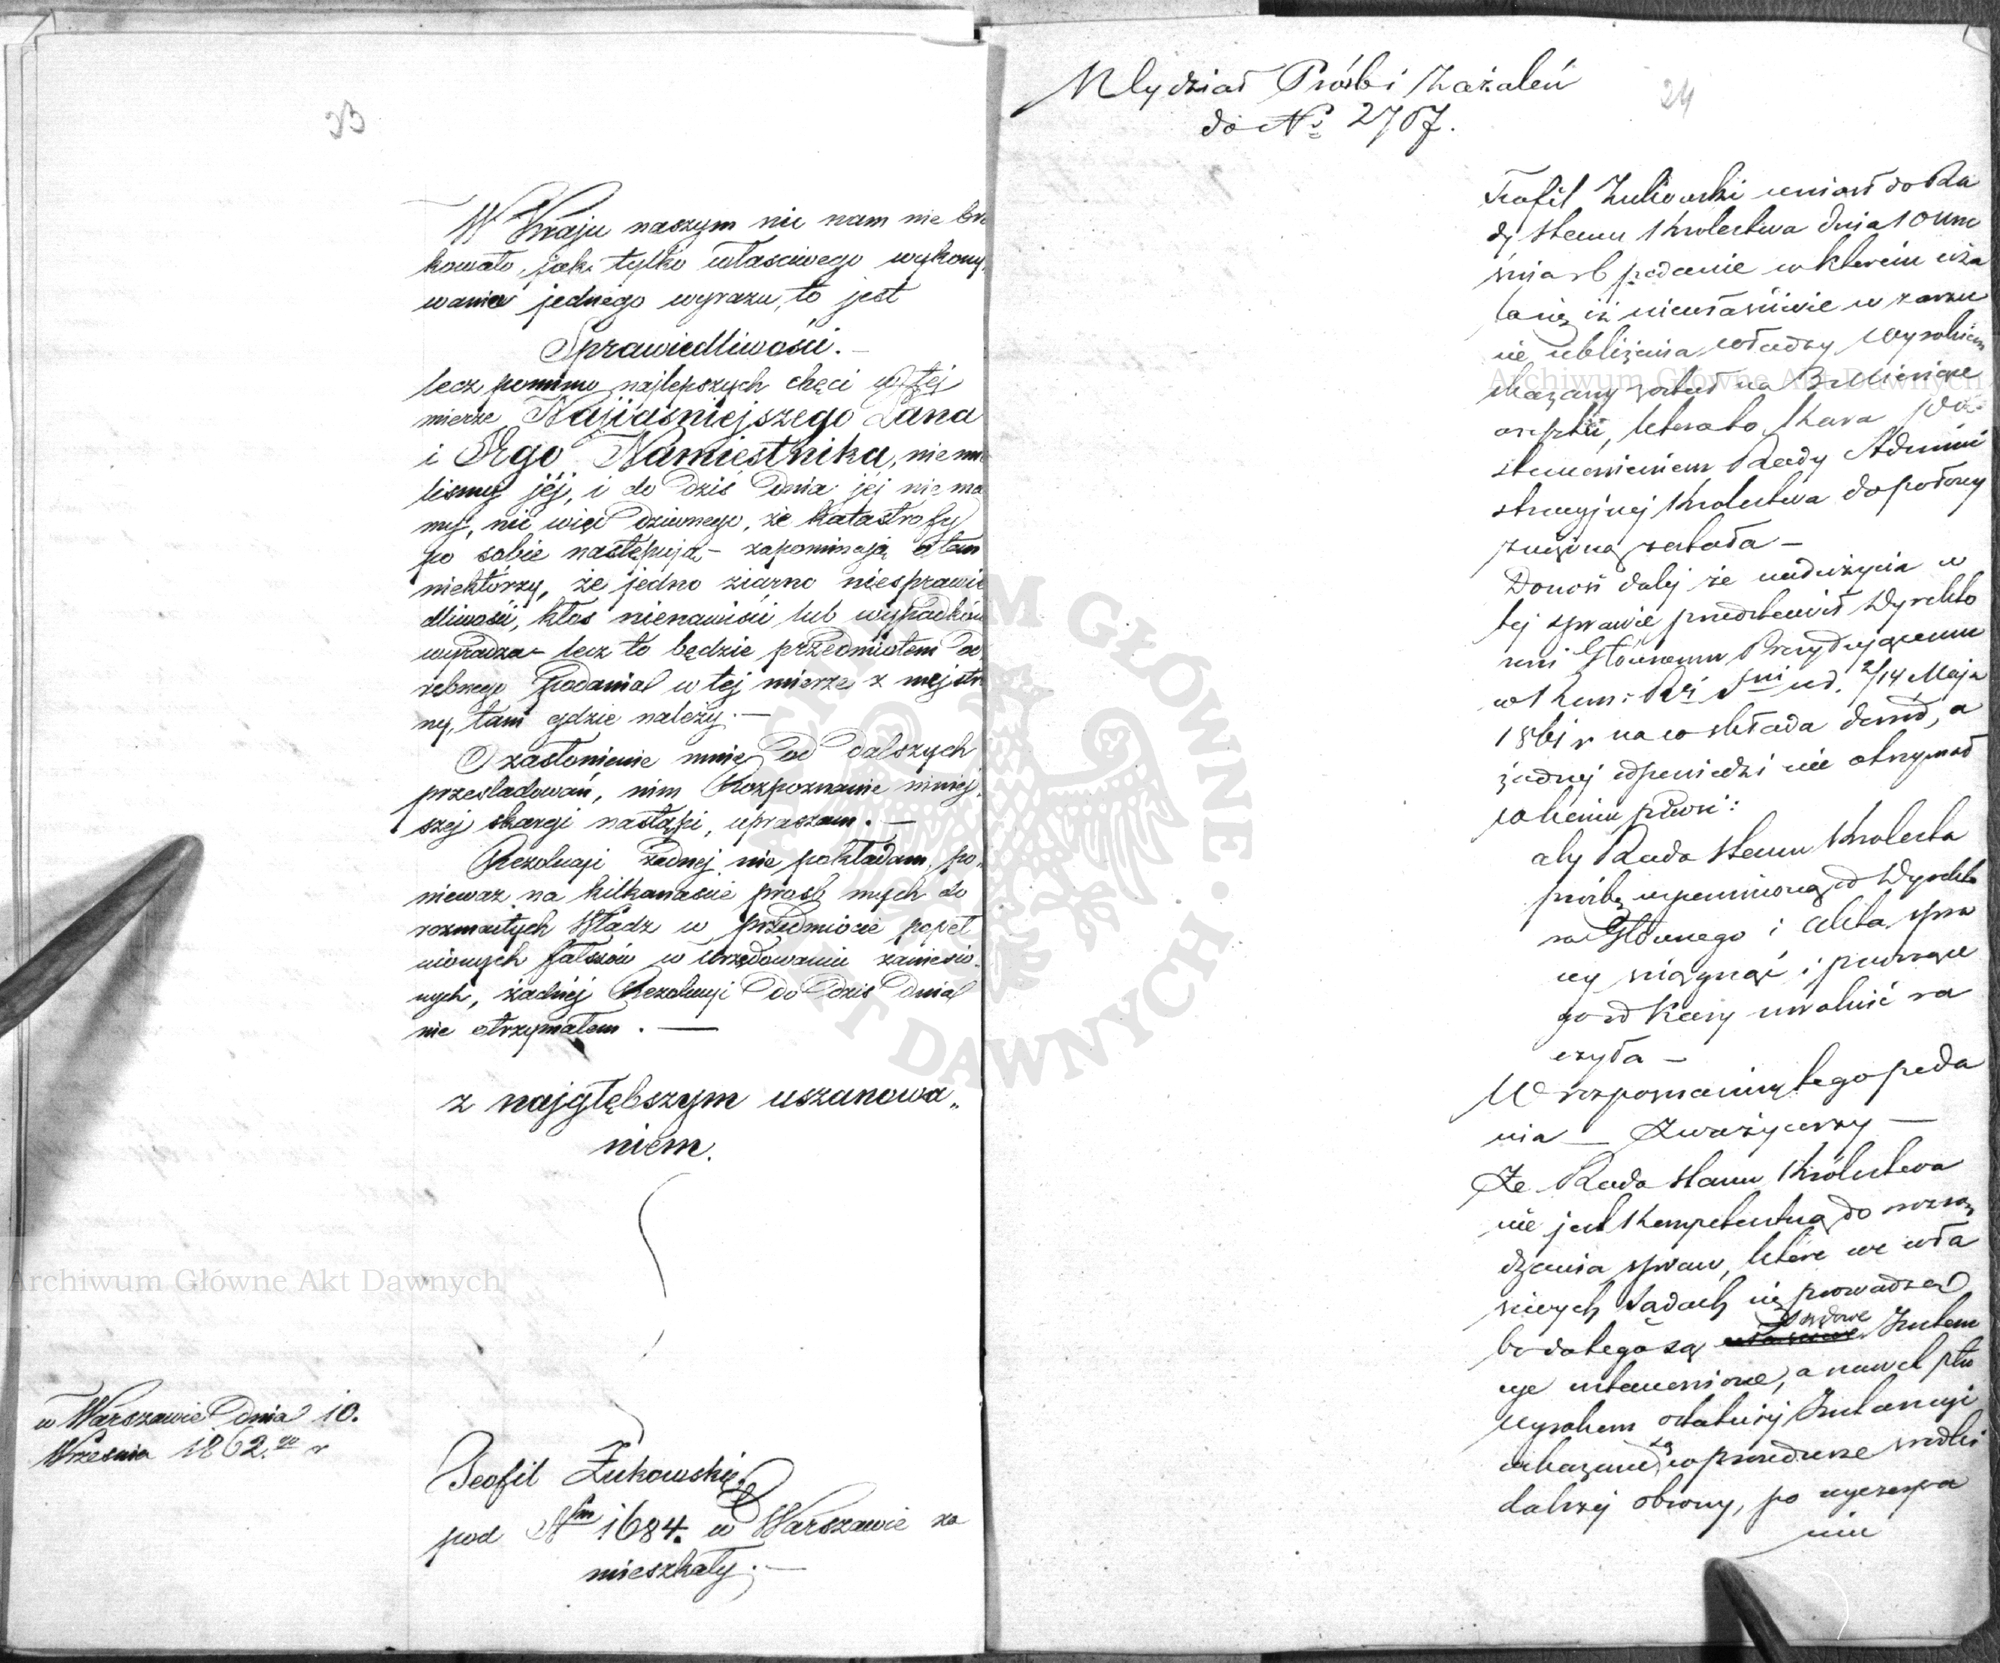 23
W Kraju naszym nic nam nie bra
kowało, jak tylko właściwego wykony„
wania jednego wyrazu, to jest
Sprawiedliwości. —
lecz pomimo najlepszych chęci w tej
mierze Najjaśniejszego Pana
i Jego Namiestnika, nie mie
liśmy jéj, i do dziś dnia jej nie ma
my, nic więc dziwnego, że katastrofy
po sobie następują – zapominają o tem
niektórzy, że jedno ziarno niesprawie
dliwości, kłos nienawiści lub wypadków
wyradza – lecz to będzie przedmiotem od
rębnego podania w tej mierze z mej stro
ny, tam gdzie należy. —
O zasłonienie mnie od dalszych
prześladowań, nim Rozpoznanie niniej„
szej skargi nastąpi, upraszam. —
Rezolucyi żadnej nie pokładam, po„
nieważ na kilkanaście prośb mych do
rozmaitych Władz w przedmiocie popeł
nionych fałszów w urzędowaniu zaniesio„
nych, żadnéj Rezolucyi do dziś dnia
nie otrzymałem. —
z najgłębszym uszanowa„
niem.
w Warszawie dnia 10.
Września 1862.go r
Teofil Żukowski
pod Nrm 1684. w Warszawie za
mieszkały. —
24
Wydział Próśb i Zażaleń
do No 2767.
Teofil Żukowski wniósł do Ra
dy Stanu Królestwa dnia 10 Wrze
śnia rb podanie w którém uża
la się iż niewłaściwie w zarzu
cie ubliżenia władzy Wyrokiem
skazany został na 3 Miesiące
aresztu, która to kara po
stanowieniem Rady Admini
stracyjnej Królestwa do połowy
zniżoną została —
Donosi dalej że nadużycia w
tej sprawie przedstawił Dyrekto
rowi Głównemu Prezydującemu
w Kom: Rz. Sprni w d. 2/14 Maja
1861 r na co składa dowód, a
żadnej odpowiedzi nie otrzymał
w końcu prosi:
aby Rada Stanu Królestwa
prośbę wspomnioną od Dyrekto
ra Głównego i akta spra
wy ściągnąć i
go od kary uwolnić ra
czyła —
W rozpoznaniu tego poda
nia — Zważywszy —
Że Rada Stanu Królestwa
nie jest kompetentną do rozsą
dzania spraw, które we wła
ściwych Sądach się prowadzą
bo do tego są Sądowe Instan
cye ustanowione, a nawet po
Wyroku ostatniej Instancyi
wskazane są w procedurze środki
dalszej obrony, po wyczerpa
niu
Archiwum Główne Akt Dawnych
Archiwum Główne Akt Dawnych
ARCHIWUM GŁÓWNE AKT DAWNYCH